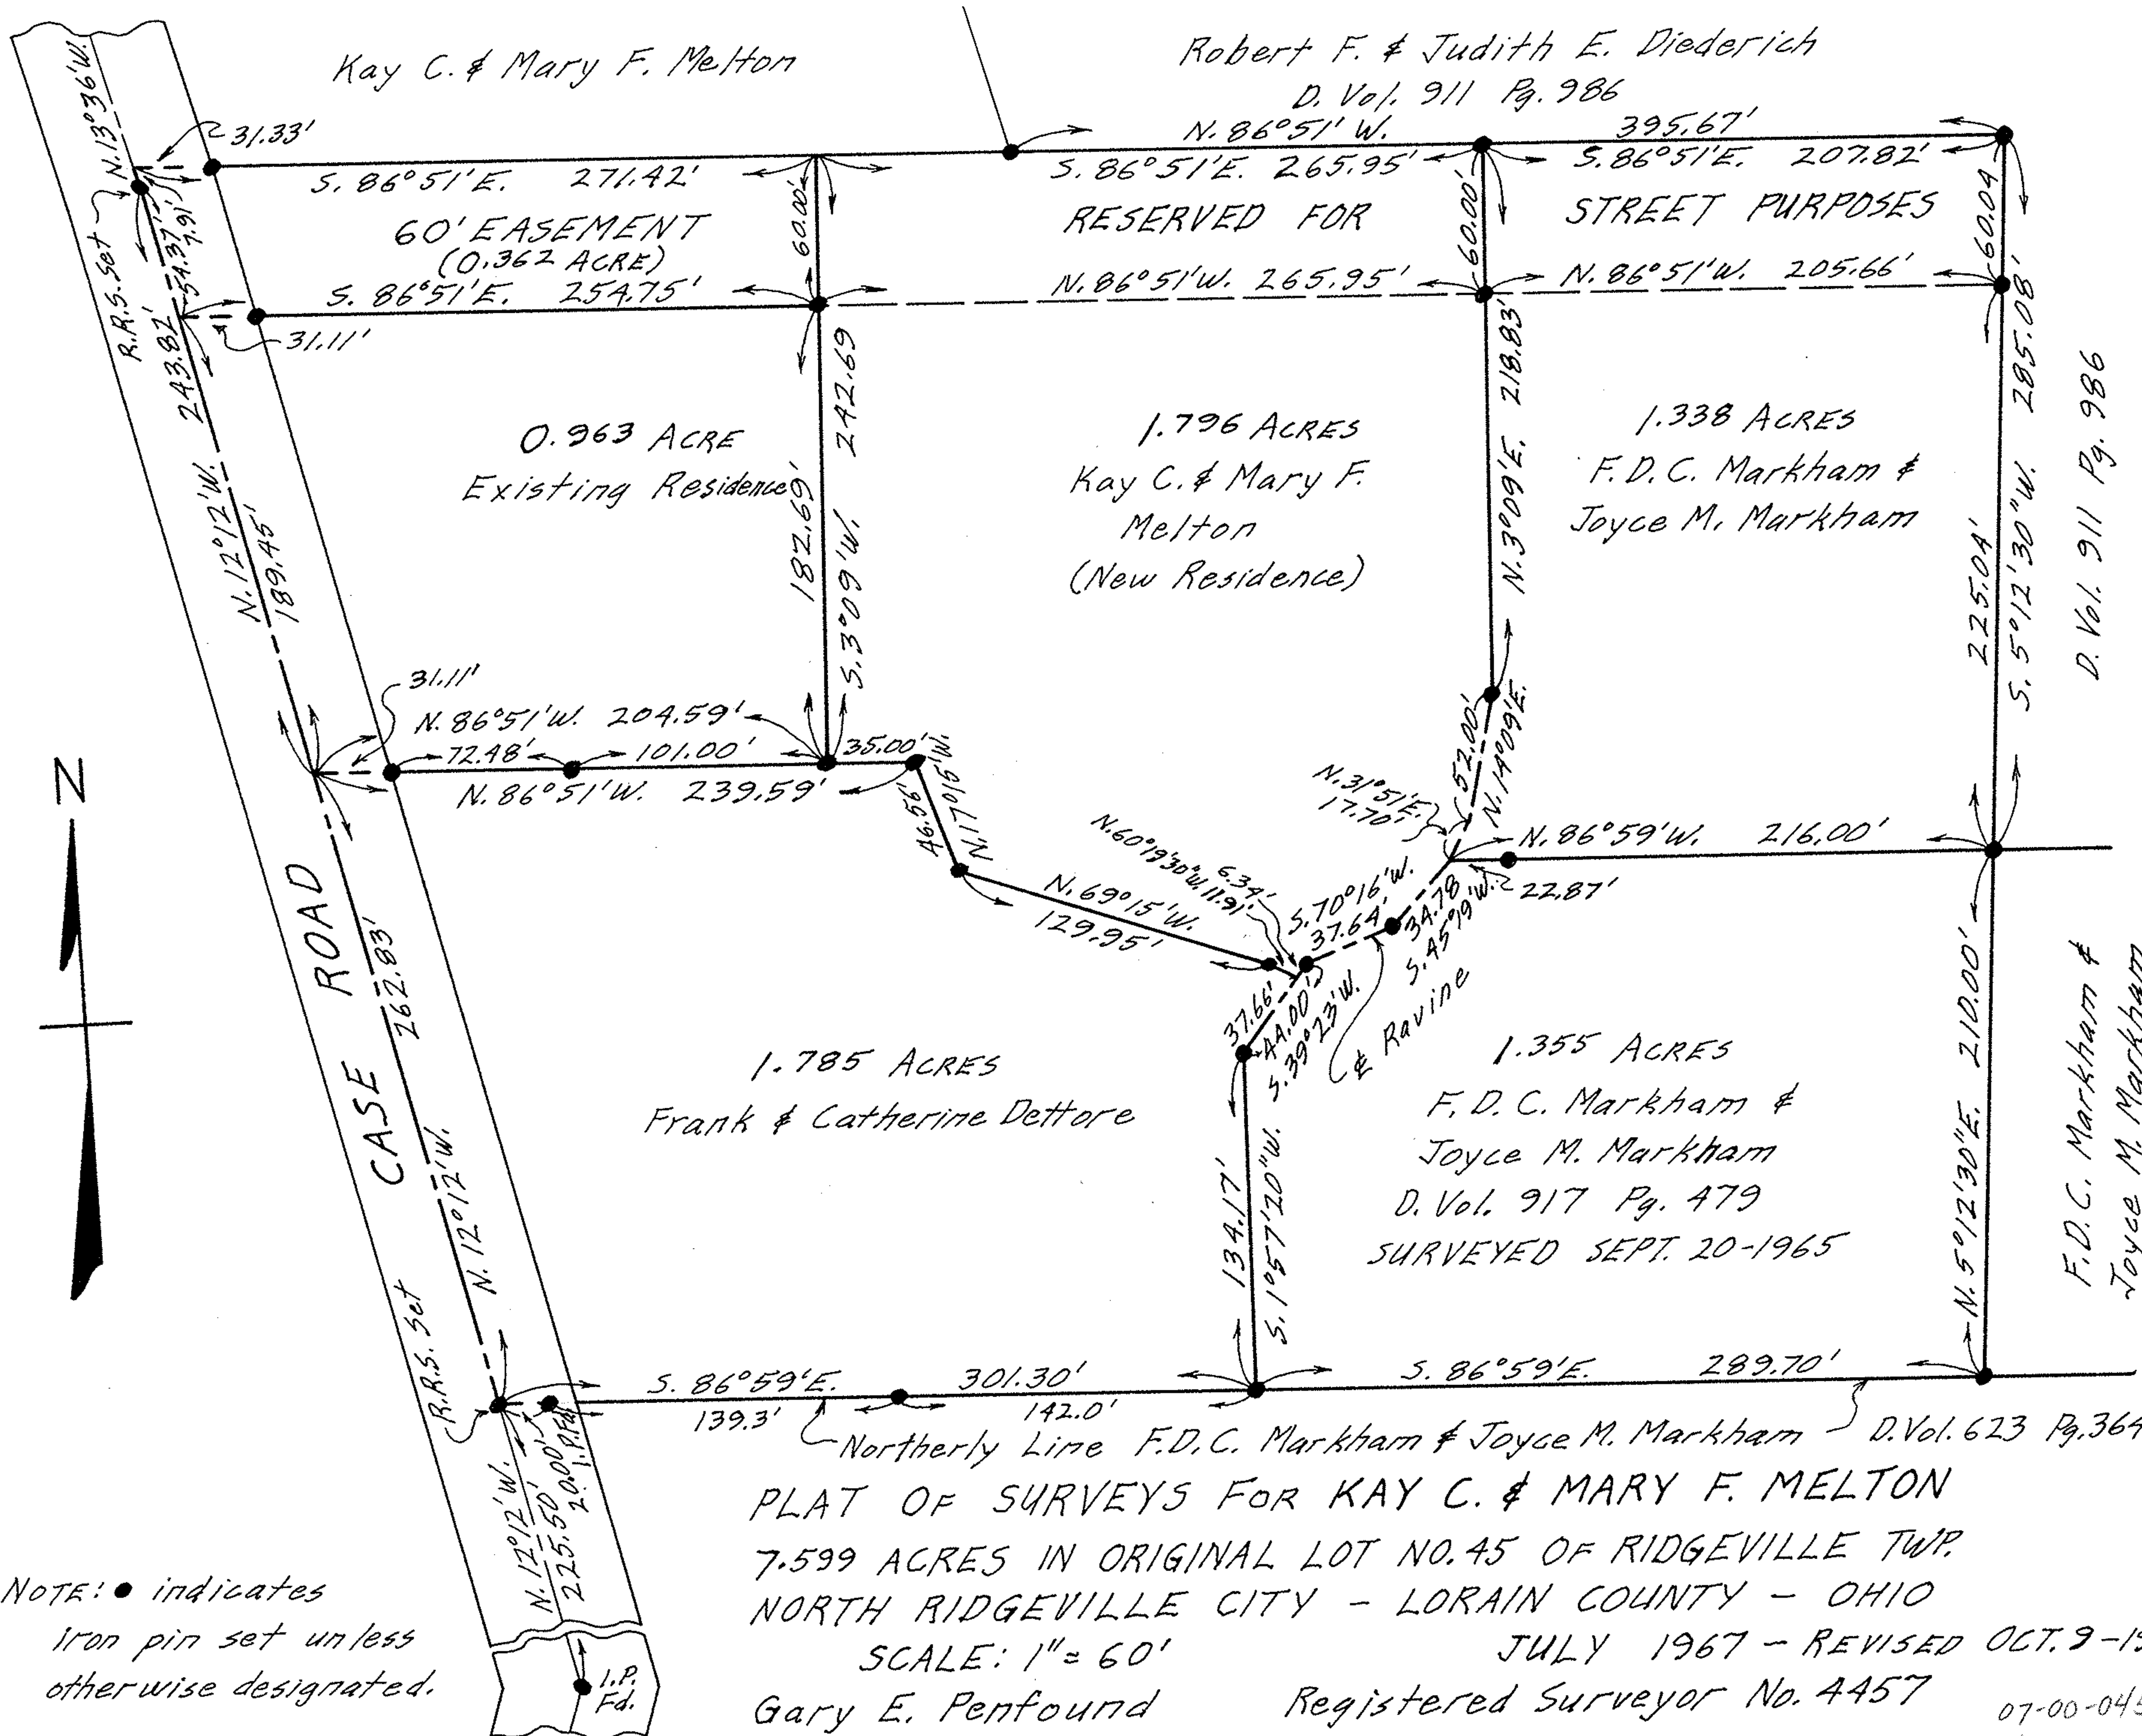 Kay C. & Mary F. Melton
Robert F. & Judith E. Diederich
D. Vol. 911 Pg. 986
N. 86°51' W. 395.67'
N. 13°36' W.
31.33'
S. 86°51' E. 271.42'
S. 86°51' E. 265.95'
S. 86°51' E. 207.82'
60' EASEMENT
(0.362 ACRE)
RESERVED FOR
STREET PURPOSES
60.00'
60.00'
60.04
R.R.S. Set
7.91'
54.37'
S. 86°51' E. 254.75'
N. 86°51' W. 265.95'
N. 86°51' W. 205.66'
31.11'
243.82'
N. 12°12' W.
189.45'
0.963 ACRE
Existing Residence
182.69'
S. 3°09' W. 242.69
1.796 ACRES
Kay C. & Mary F.
Melton
(New Residence)
N. 3°09' E. 218.83'
1.338 ACRES
F. D. C. Markham &
Joyce M. Markham
225.04'
S. 5°12'30" W. 285.08'
D. Vol. 911 Pg. 986
31.11'
N. 86°51' W. 204.59'
72.48' 101.00' 35.00'
N. 86°51' W. 239.59'
46.56'
N. 17°15' W.
N. 69°15' W.
129.95'
N. 60°19'30" W. 11.91'
6.34'
N. 31°51' E.
17.70'
52.00'
N. 14°09' E.
S. 70°16' W.
37.64'
34.78
S. 45°19' W.
22.87'
N. 86°59' W. 216.00'
37.66'
44.00'
S. 39°23' W.
℄ Ravine
N
CASE ROAD
262.83'
N. 12°12' W.
R.R.S. Set
1.785 ACRES
Frank & Catherine Dettore
134.17'
S. 1°57'20" W.
1.355 ACRES
F. D. C. Markham &
Joyce M. Markham
D. Vol. 917 Pg. 479
SURVEYED SEPT. 20-1965
N. 5°12'30" E. 210.00'
F. D. C. Markham &
Joyce M. Markham
S. 86°59' E. 301.30'
S. 86°59' E. 289.70'
139.3' 142.0'
Northerly Line F.D.C. Markham & Joyce M. Markham D. Vol. 623 Pg. 364
N. 12°12' W.
225.50'
20.00'
I.P. Fd.
I.P.
Fd.
PLAT OF SURVEYS FOR KAY C. & MARY F. MELTON
7.599 ACRES IN ORIGINAL LOT NO. 45 OF RIDGEVILLE TWP.
NORTH RIDGEVILLE CITY - LORAIN COUNTY - OHIO
SCALE: 1" = 60'
JULY 1967 - REVISED OCT. 9-19
Gary E. Penfound
Registered Surveyor No. 4457
07-00-045
NOTE: ● indicates
iron pin set unless
otherwise designated.